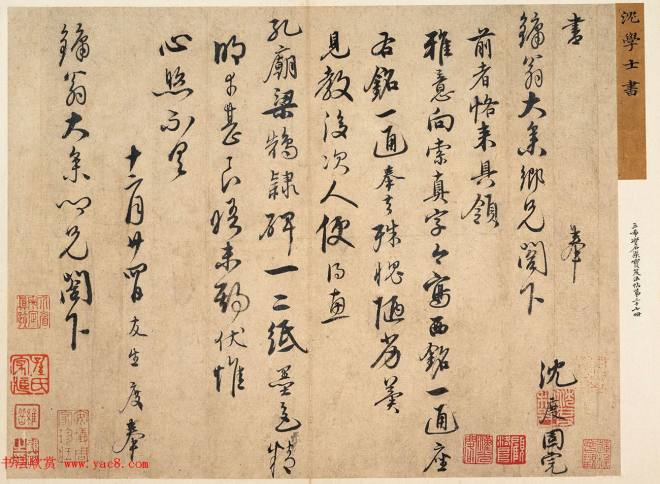 沈學士書
書
奉
沈度固完
鏞翁大參鄉兄閣下
前者恪來具領
雅意向索真字今寫西銘一通座
右銘一通奉去殊愧陋劣冀
見教後次人便得惠
孔廟梁鵠隸碑一二紙墨色精
明者甚良臨未罄伏惟
心照不具
十二月廿四日友生度奉
鏞翁大參鄉兄閣下
书法欣赏 www.yac8.com